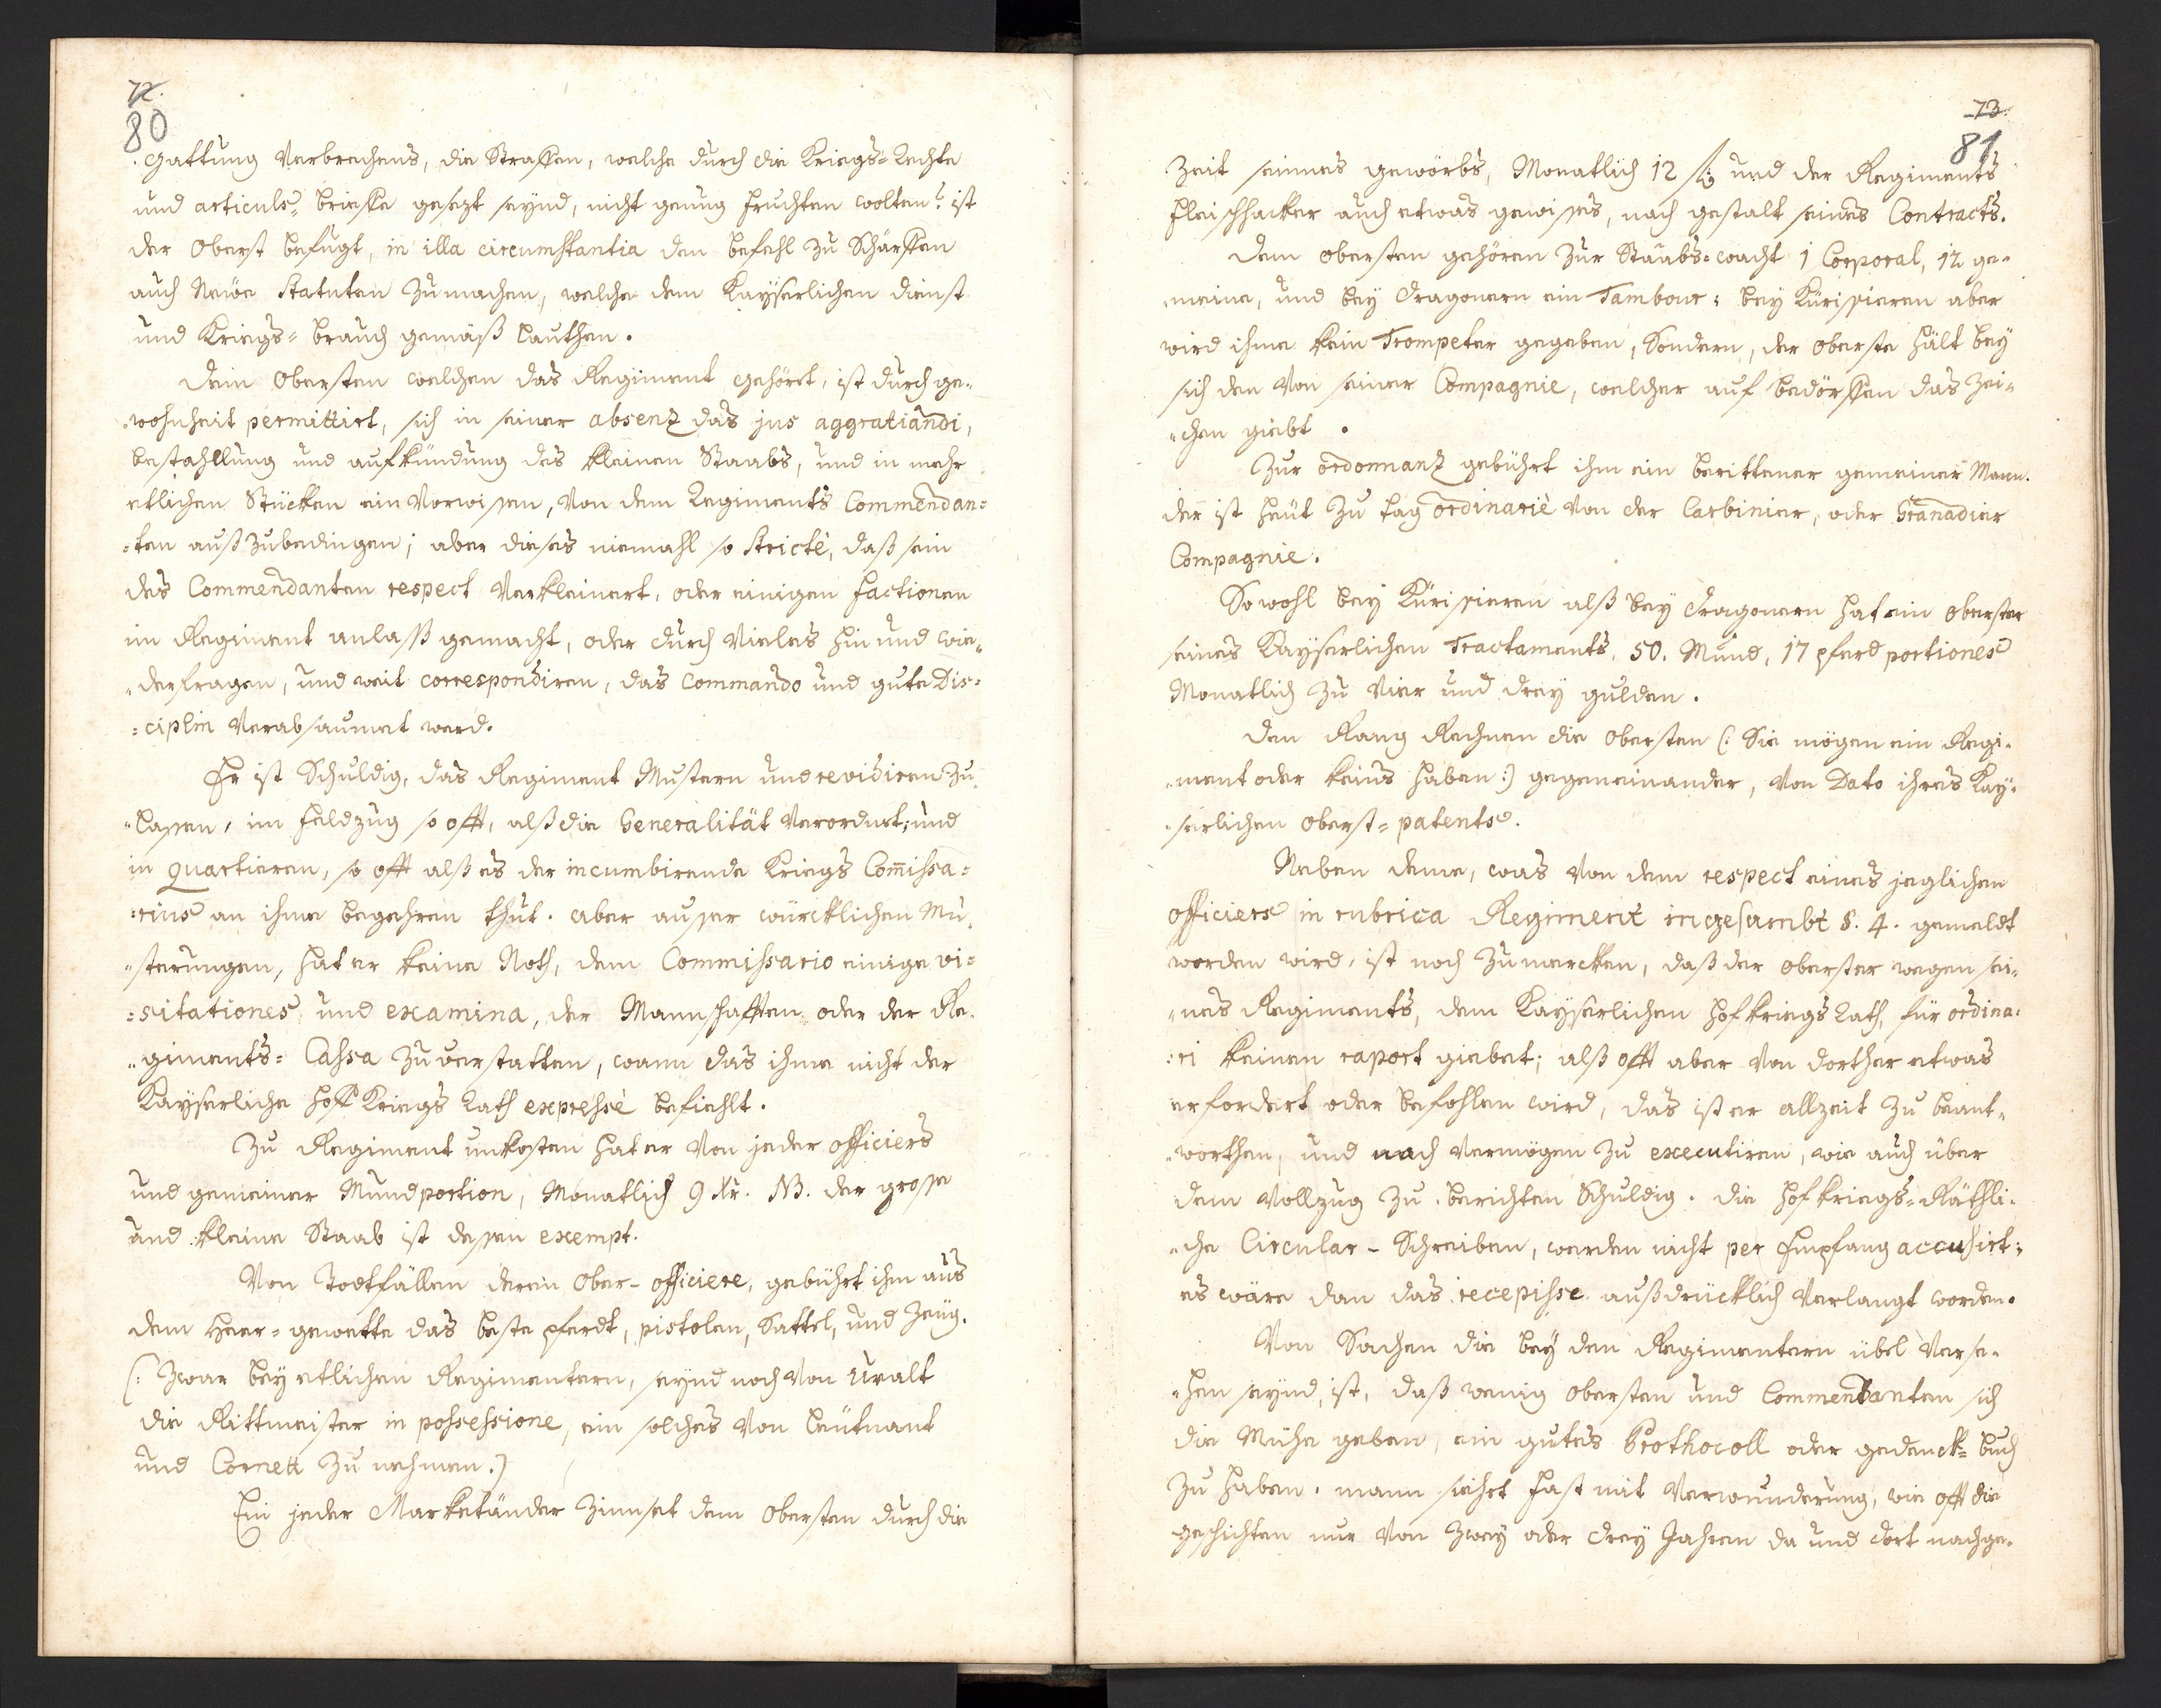 72.
80
gattung Verbrechens, die Straffen, welche durch die Kriegs-Rechte
und articuls-brieffe gesezt seynd, nicht genug fruchten wolten? ist
der Oberst befugt, in illa circumstantia den befehl zu Schärffen
auch Newe Statuten zumachen, welche dem Kayserlichen dienst
und Kriegs-brauch gemäß lauthen.
Dem Obersten welchen das Regiment gehört, ist durch ge-
wohnheit permittirt, sich in seiner absenz das jus aggratiandi,
bestahllung und aufkündung des kleinen Staabs, und in mehr
etlichen Stücken ein Vorwissen, Von dem Regiments Commendan=
=ten auß zubedingen; aber dieses niemahl so strictè, daß sein
des Commendanten respect Verkleinert, oder einigen factionen
im Regiment anlaß gemacht, oder durch Vieles hin und wie-
derfragen, und weit correspondiren, das Commando und gute Dis=
=ciplin Verabsaumet werd.
Er ist Schuldig, das Regiment Mustern und revidiren zu
lassen, im feldzug so offt, alß die Generalität Verordnet; und
in quartieren, so offt alß es der incumbirende Kriegs Com̄issa=
=rius an ihme begehren thut. aber ausser würcklichen Mu-
sterungen, hat er keine Noth, dem Commissario einige vi=
=sitationes und examina, der Mannschafften oder der Re-
giments= Cassa zu verstatten, wann das ihme nicht der
Kayserliche Hoff Kriegs Rath expressè befiehlt.
Zu Regiment unkosten hat er Von jeder officiers
und gemeiner Mundportion, Monatlich 9 Xr. NB. der grosse
und kleine Staab ist dessen exempt.
Von Todtfällen deren Ober-officiere, gebührt ihm aus
dem Heer=gewette das beste pferdt, pistolen, Sattel, und Zeüg.
(: Zwar bey etlichen Regimentern, seynd noch Von Uralt
die Rittmeister in possessione, ein solches Von Leütnant
und Cornett zu nehmen.)
Ein jeder Marketänder Zinnset dem Obersten durch die
73.
81
Zeit seines gewörbs, Monatlich 12 und der Regiments
fleischhacker auch etwas gewisses, nach gestalt seines Contracts.
Dem obersten gehören zur Staabs-wacht 1 Corporal, 12 ge-
meine, und bey dragonern ein Tambour: bey Kürissieren aber
wird ihme kein Trompeter gegeben, Sondern, der Oberste hält bey
sich den Von seiner Compagnie, welcher auf bedörffen das Zei-
chen giebt.
Zur ordonnanz gebührt ihm ein berittener gemeiner Mann.
der ist heüt zu tag ordinariè Von der Carbinier, oder Granadier
Compagnie.
Sowohl bey Kürissieren alß bey dragonern hat ein Oberster
seines Kayserlichen Tractaments, 50. Mund, 17 pferd portiones
Monatlich zu Vier und drey gulden.
Den Rang Rechnen die Obersten (: Sie mögen ein Regi-
ment oder keins haben:) gegeneinander, Von Dato ihres Kay-
serlichen Oberst=patents.
Neben deme, was Von dem respect eines jeglichen
officiers in rubrica Regiment ingesambt §. 4. gemeldt
worden wird, ist noch zumercken, daß der Oberster wegen sei-
nes Regiments, dem Kayserlichen Hofkriegs Rath, für ordina-
ri keinen raport giebet; alß offt aber Von dorther etwas
erfordert oder befohlen wird, das ist er allzeit zu beant-
worthen, und nach Vermögen zu executiren, wie auch über
dem Vollzug zu berichten Schuldig. die Hofkriegs-Räthli-
che Circular-Schreiben, werden nicht per Empfang accusirt;
es wäre dan das recepisse außdrücklich Verlangt worden.
Von Sachen die bey den Regimentern übel Verse-
hen seynd, ist, daß wenig Obersten und Commendanten sich
die Mühe geben, ein gutes Prothocoll oder gedenck-buch
zu haben. mann siehet fast mit Verwunderung, wie offt die
geschichten nur Von Zwey oder drey Jahren da und dort nachge-